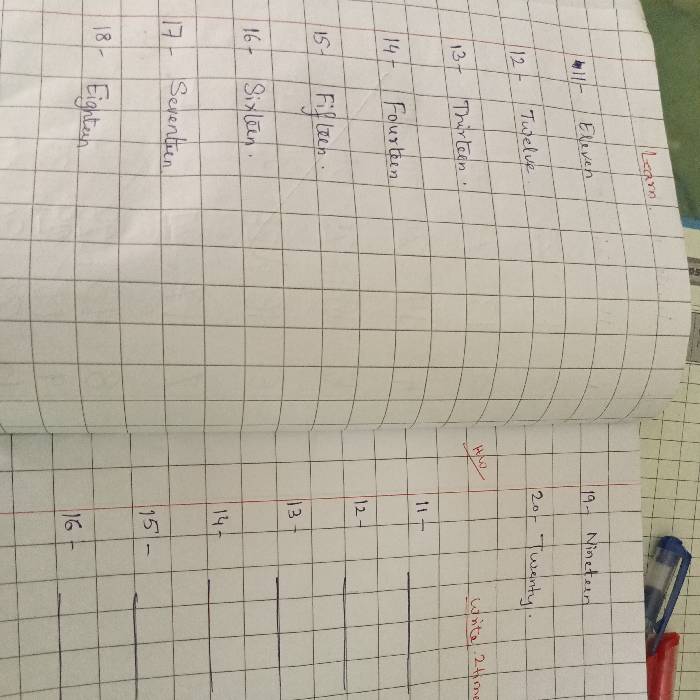 Learn.
11- Eleven
12- Twelve.
13- Thirteen.
14- Fourteen
15- Fifteen.
16- Sixteen.
17- Seventeen
18- Eighteen
19- Nineteen
20- Twenty.
H/W
Write 2 time
11-
12-
13-
14-
15-
16-